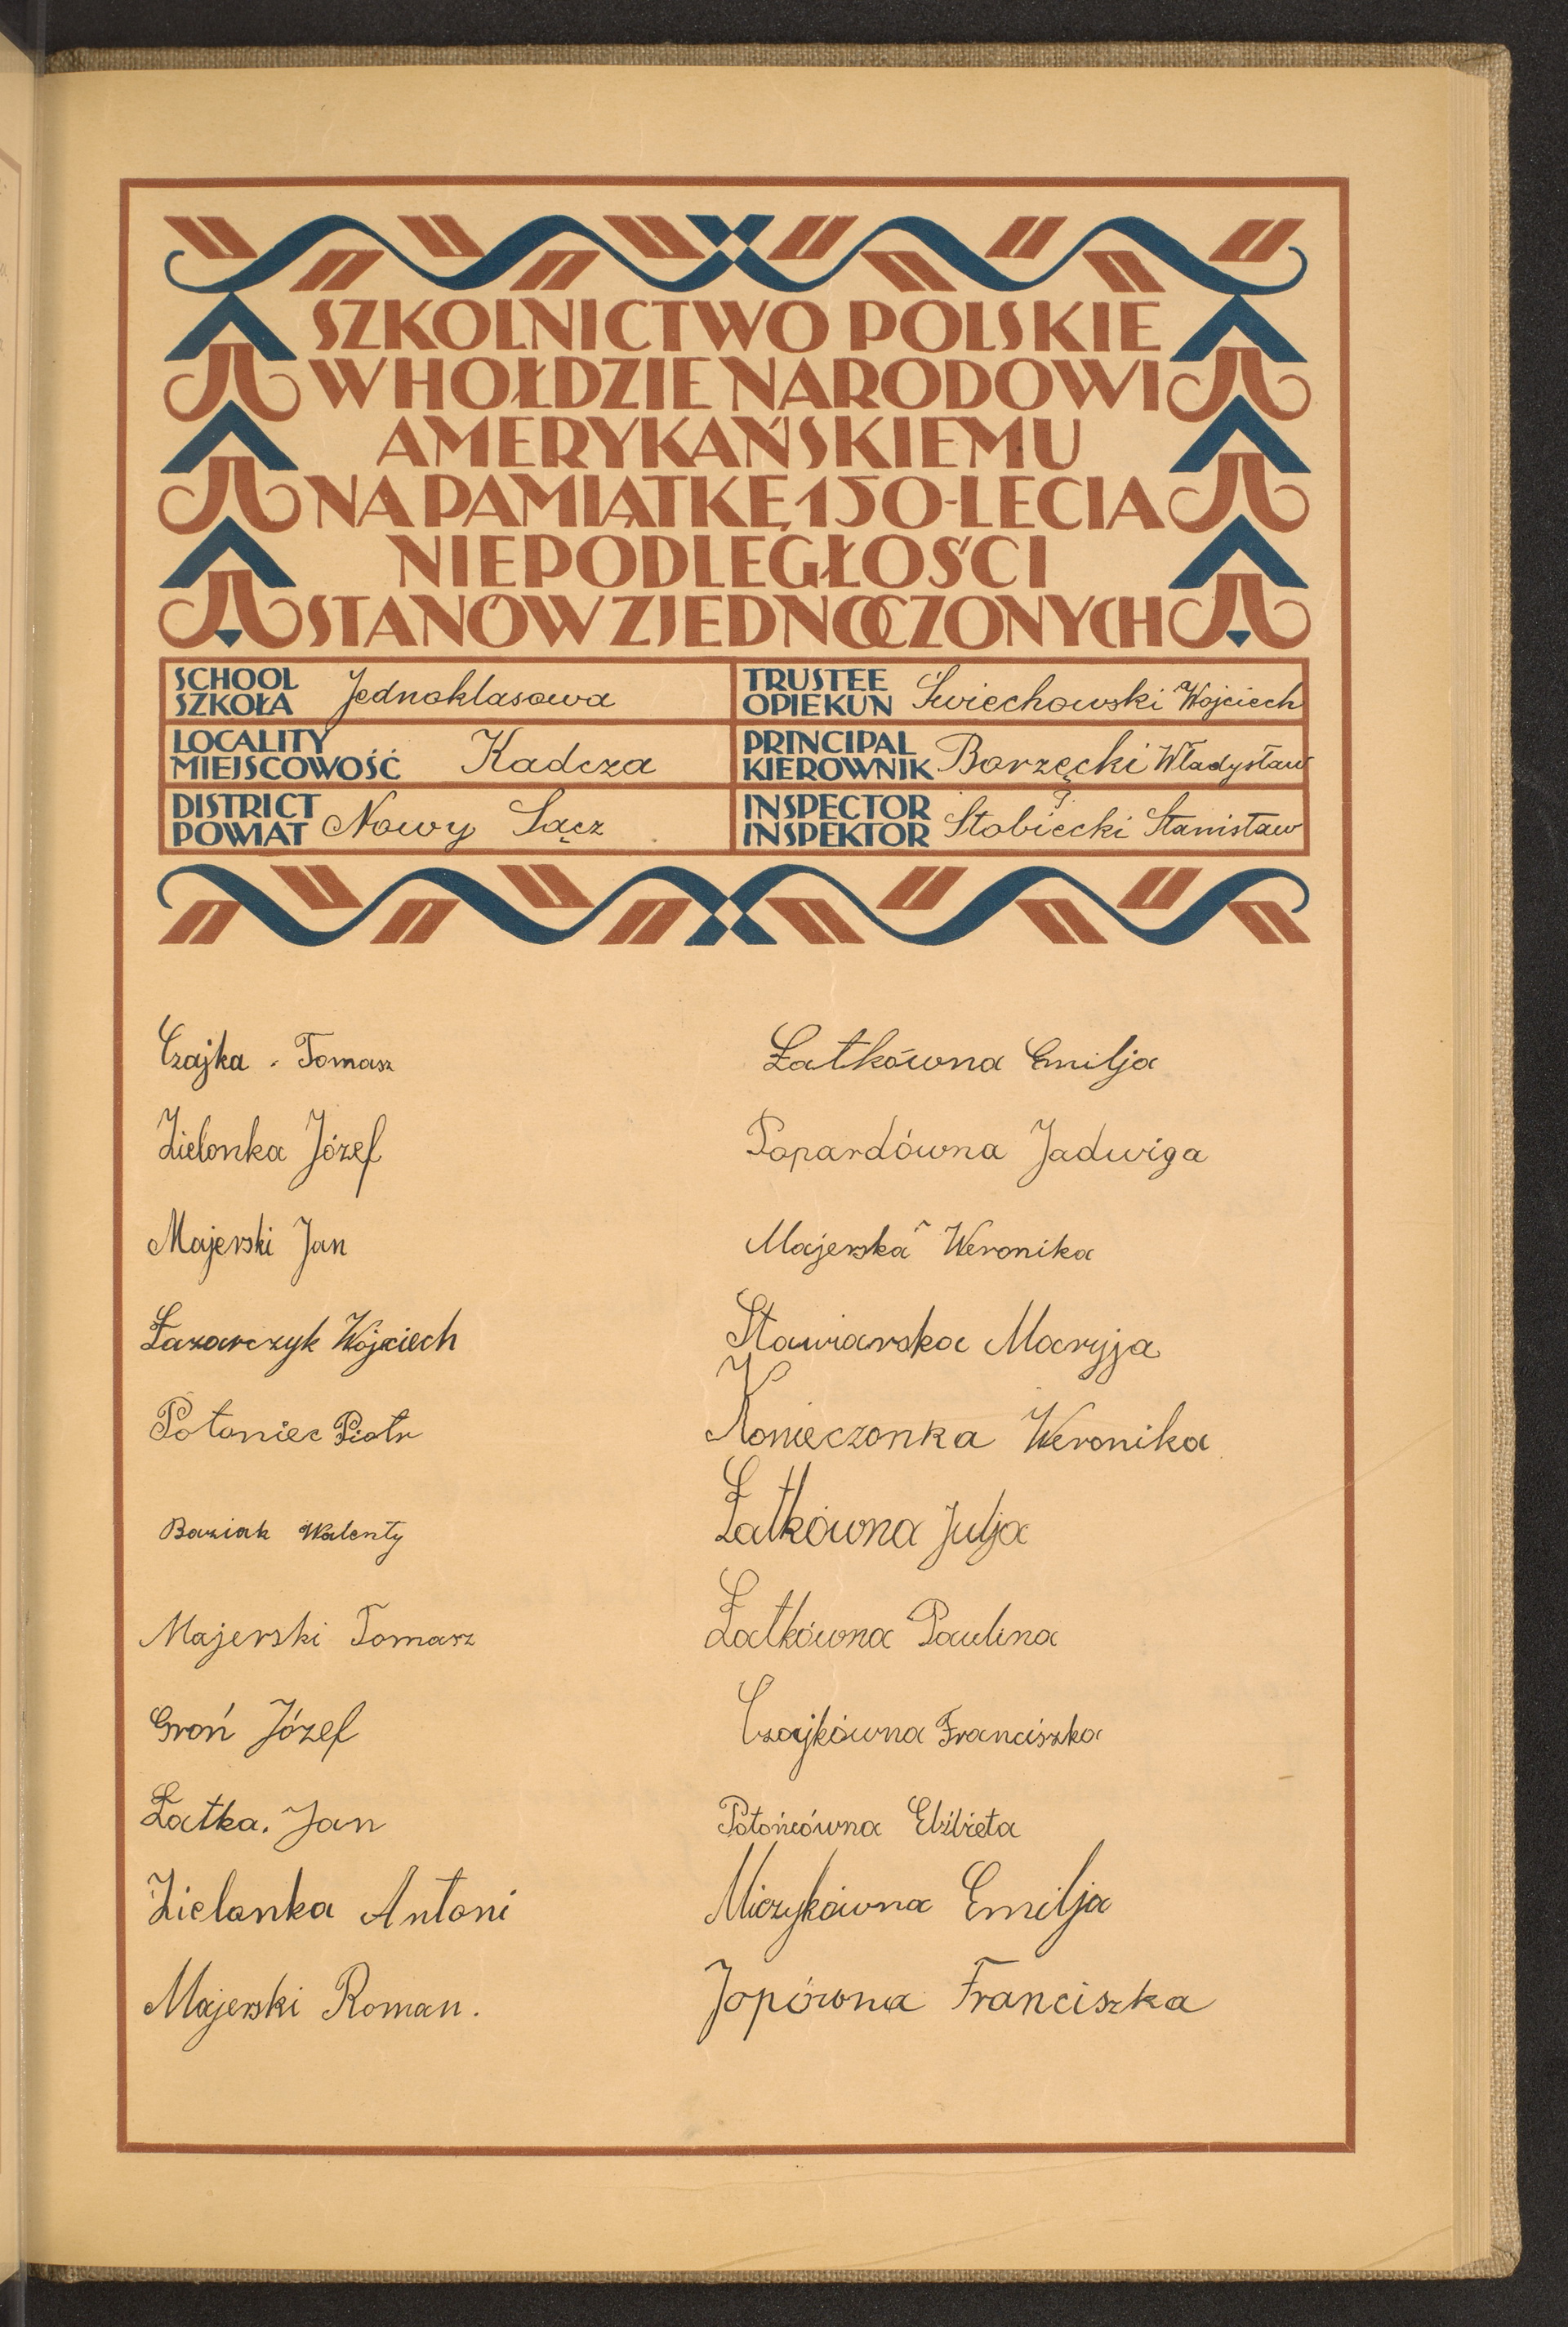 SZKOLNICTWO POLSKIE
W HOŁDZIE NARODOWI
AMERYKAŃSKIEMU
NA PAMIĄTKĘ 150-LECIA
NIEPODLEGŁOŚCI
STANÓW ZJEDNOCZONYCH
SCHOOL
SZKOŁA Jednoklasowa
TRUSTEE
OPIEKUN Świechowski Wojciech
LOCALITY
MIEJSCOWOŚĆ Kadcza
PRINCIPAL
KIEROWNIK Borzęcki Władysław
DISTRICT
POWIAT Nowy Sącz
INSPECTOR
INSPEKTOR Stobiecki Stanisław
Czajka. Tomasz
Zielonka Józef
Majerski Jan
Łazarczyk Wojciech
Potoniec Piotr
Baziak Walenty
Majerski Tomasz
Groń Józef
Łatka. Jan
Zielonka Antoni
Majerski Roman.
Łatkówna Emilja
Popardówna Jadwiga
Majerska Weronika
Stawiarska Maryja
Konieczonka Weronika
Łatkówna Julja
Łatkówna Paulina
Czajkówna Franciszka
Potońcówna Elżbieta
Miczykówna Emilja
Jopówna Franciszka